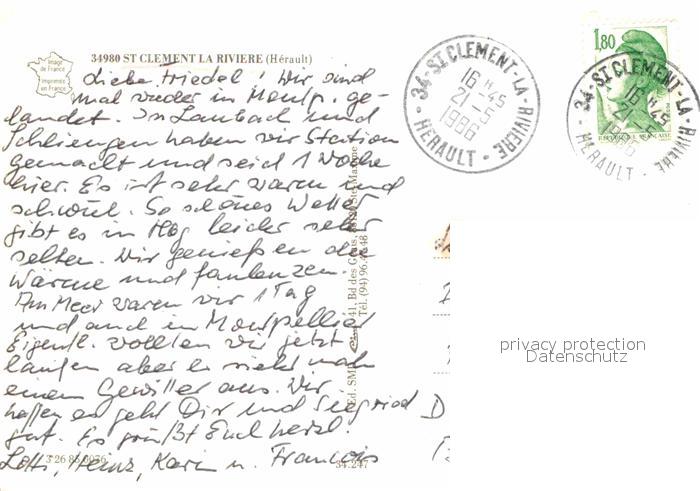 Image
de France
Imprimée
en France
34980 ST CLEMENT LA RIVIERE (Hérault)
Liebe Friedel! Wir sind
mal wieder in Montp. ge-
landet. In Laubach und
Schliengen haben wir Station
gemacht und seid 1 Woche
hier. Es ist sehr warm und
schwül. So schönes Wetter
gibt es in Hbg leider sehr
selten. Wir genießen die
Wärme und faulenzen.
Am Meer waren wir 1 Tag
und auch in Montpellier
Eigentl. wollten wir jetzt
laufen aber es sieht nach
einem Gewitter aus. Wir
hoffen es geht Dir und Siegried
gut. Es grüßt Euch herzl.
Lotti, Heinz, Karin u. Francois
3 26 85 0076
34.247
Ed. SMD 41, Bd des
Tél. (94) 96.
34-ST CLEMENT-LA-RIVIERE
16 H 45
21-5
1986
HERAULT
1,80
34-ST CLEMENT-LA-RIVIERE
16 H 45
21-5
1986
HERAULT
D
privacy protection
Datenschutz